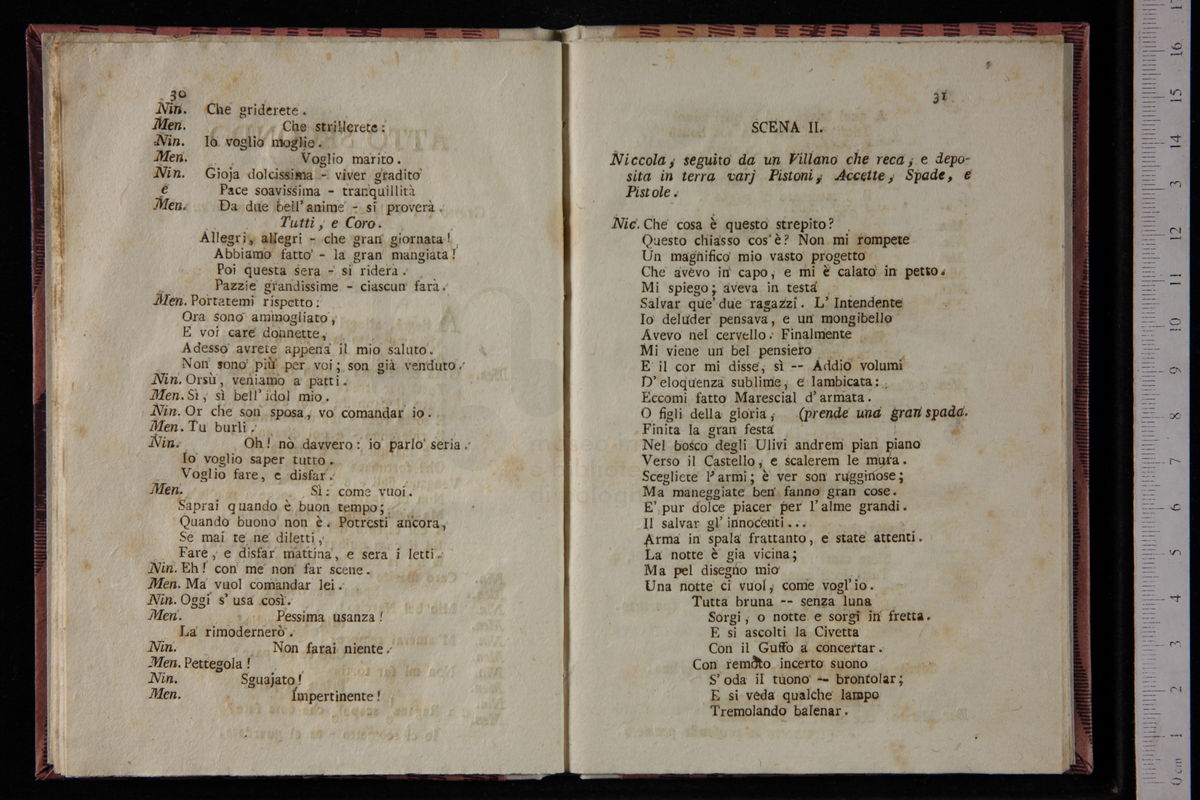 30
Nin. Che griderete.
Men. Che strillerete:
Nin. Io voglio moglie.
Men. Voglio marito.
Nin. Gioja dolcissima - viver gradito
e Pace soavissima - tranquillità
Men. Da due bell'anime - si proverà.
Tutti, e Coro.
Allegri, allegri - che gran giornata!
Abbiamo fatto - la gran mangiata!
Poi questa sera - si riderà.
Pazzie grandissime - ciascun farà.
Men. Portatemi rispetto:
Ora sono ammogliato,
E voi care donnette,
Adesso avrete appena il mio saluto.
Non sono più per voi; son già venduto.
Nin. Orsù, veniamo a patti.
Men. Sì, sì bell'idol mio.
Nin. Or che son sposa, vo comandar io.
Men. Tu burli.
Nin. Oh! nò davvero: io parlo seria.
Io voglio saper tutto.
Voglio fare, e disfar.
Men. Sì: come vuoi.
Saprai quando è buon tempo;
Quando buono non è. Potresti ancora,
Se mai te ne diletti,
Fare, e disfar mattina, e sera i letti.
Nin. Eh! con me non far scene.
Men. Ma vuol comandar lei.
Nin. Oggi s'usa così.
Men. Pessima usanza!
La rimodernerò.
Nin. Non farai niente.
Men. Pettegola!
Nin. Sguajato!
Men. Impertinente!
31
SCENA II.
Niccola, seguito da un Villano che reca, e depo-
sita in terra varj Pistoni, Accette, Spade, e
Pistole.
Nic. Che cosa è questo strepito?
Questo chiasso cos'è? Non mi rompete
Un magnifico mio vasto progetto
Che avevo in capo, e mi è calato in petto.
Mi spiego; aveva in testa
Salvar que' due ragazzi. L'Intendente
Io deluder pensava, e un mongibello
Avevo nel cervello. Finalmente
Mi viene un bel pensiero
E il cor mi disse, sì -- Addio volumi
D'eloquenza sublime, e lambicata:
Eccomi fatto Marescial d'armata.
O figli della gloria, (prende una gran spada.
Finita la gran festa
Nel bosco degli Ulivi andrem pian piano
Verso il Castello, e scalerem le mura.
Scegliete l'armi; è ver son rugginose;
Ma maneggiate ben fanno gran cose.
E' pur dolce piacer per l'alme grandi.
Il salvar gl'innocenti...
Arma in spala frattanto, e state attenti.
La notte è gia vicina;
Ma pel disegno mio
Una notte ci vuol, come vogl'io.
Tutta bruna -- senza luna
Sorgi, o notte e sorgi in fretta.
E si ascolti la Civetta
Con il Guffo a concertar.
Con remoto incerto suono
S'oda il tuono -- brontolar;
E si veda qualche lampo
Tremolando balenar.